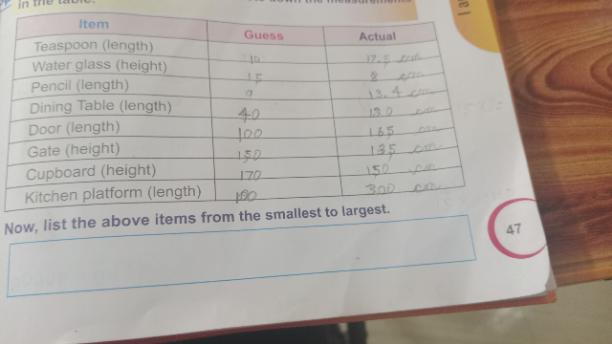 in the table.
down the measurements
Item Guess Actual
Teaspoon (length) 10 17.5 cm
Water glass (height) 15 8 cm
Pencil (length) 13.4 cm
Dining Table (length) 40 130 cm
Door (length) 100 165 cm
Gate (height) 150 135 cm
Cupboard (height) 170 150 cm
Kitchen platform (length) 300 cm
Now, list the above items from the smallest to largest.
47